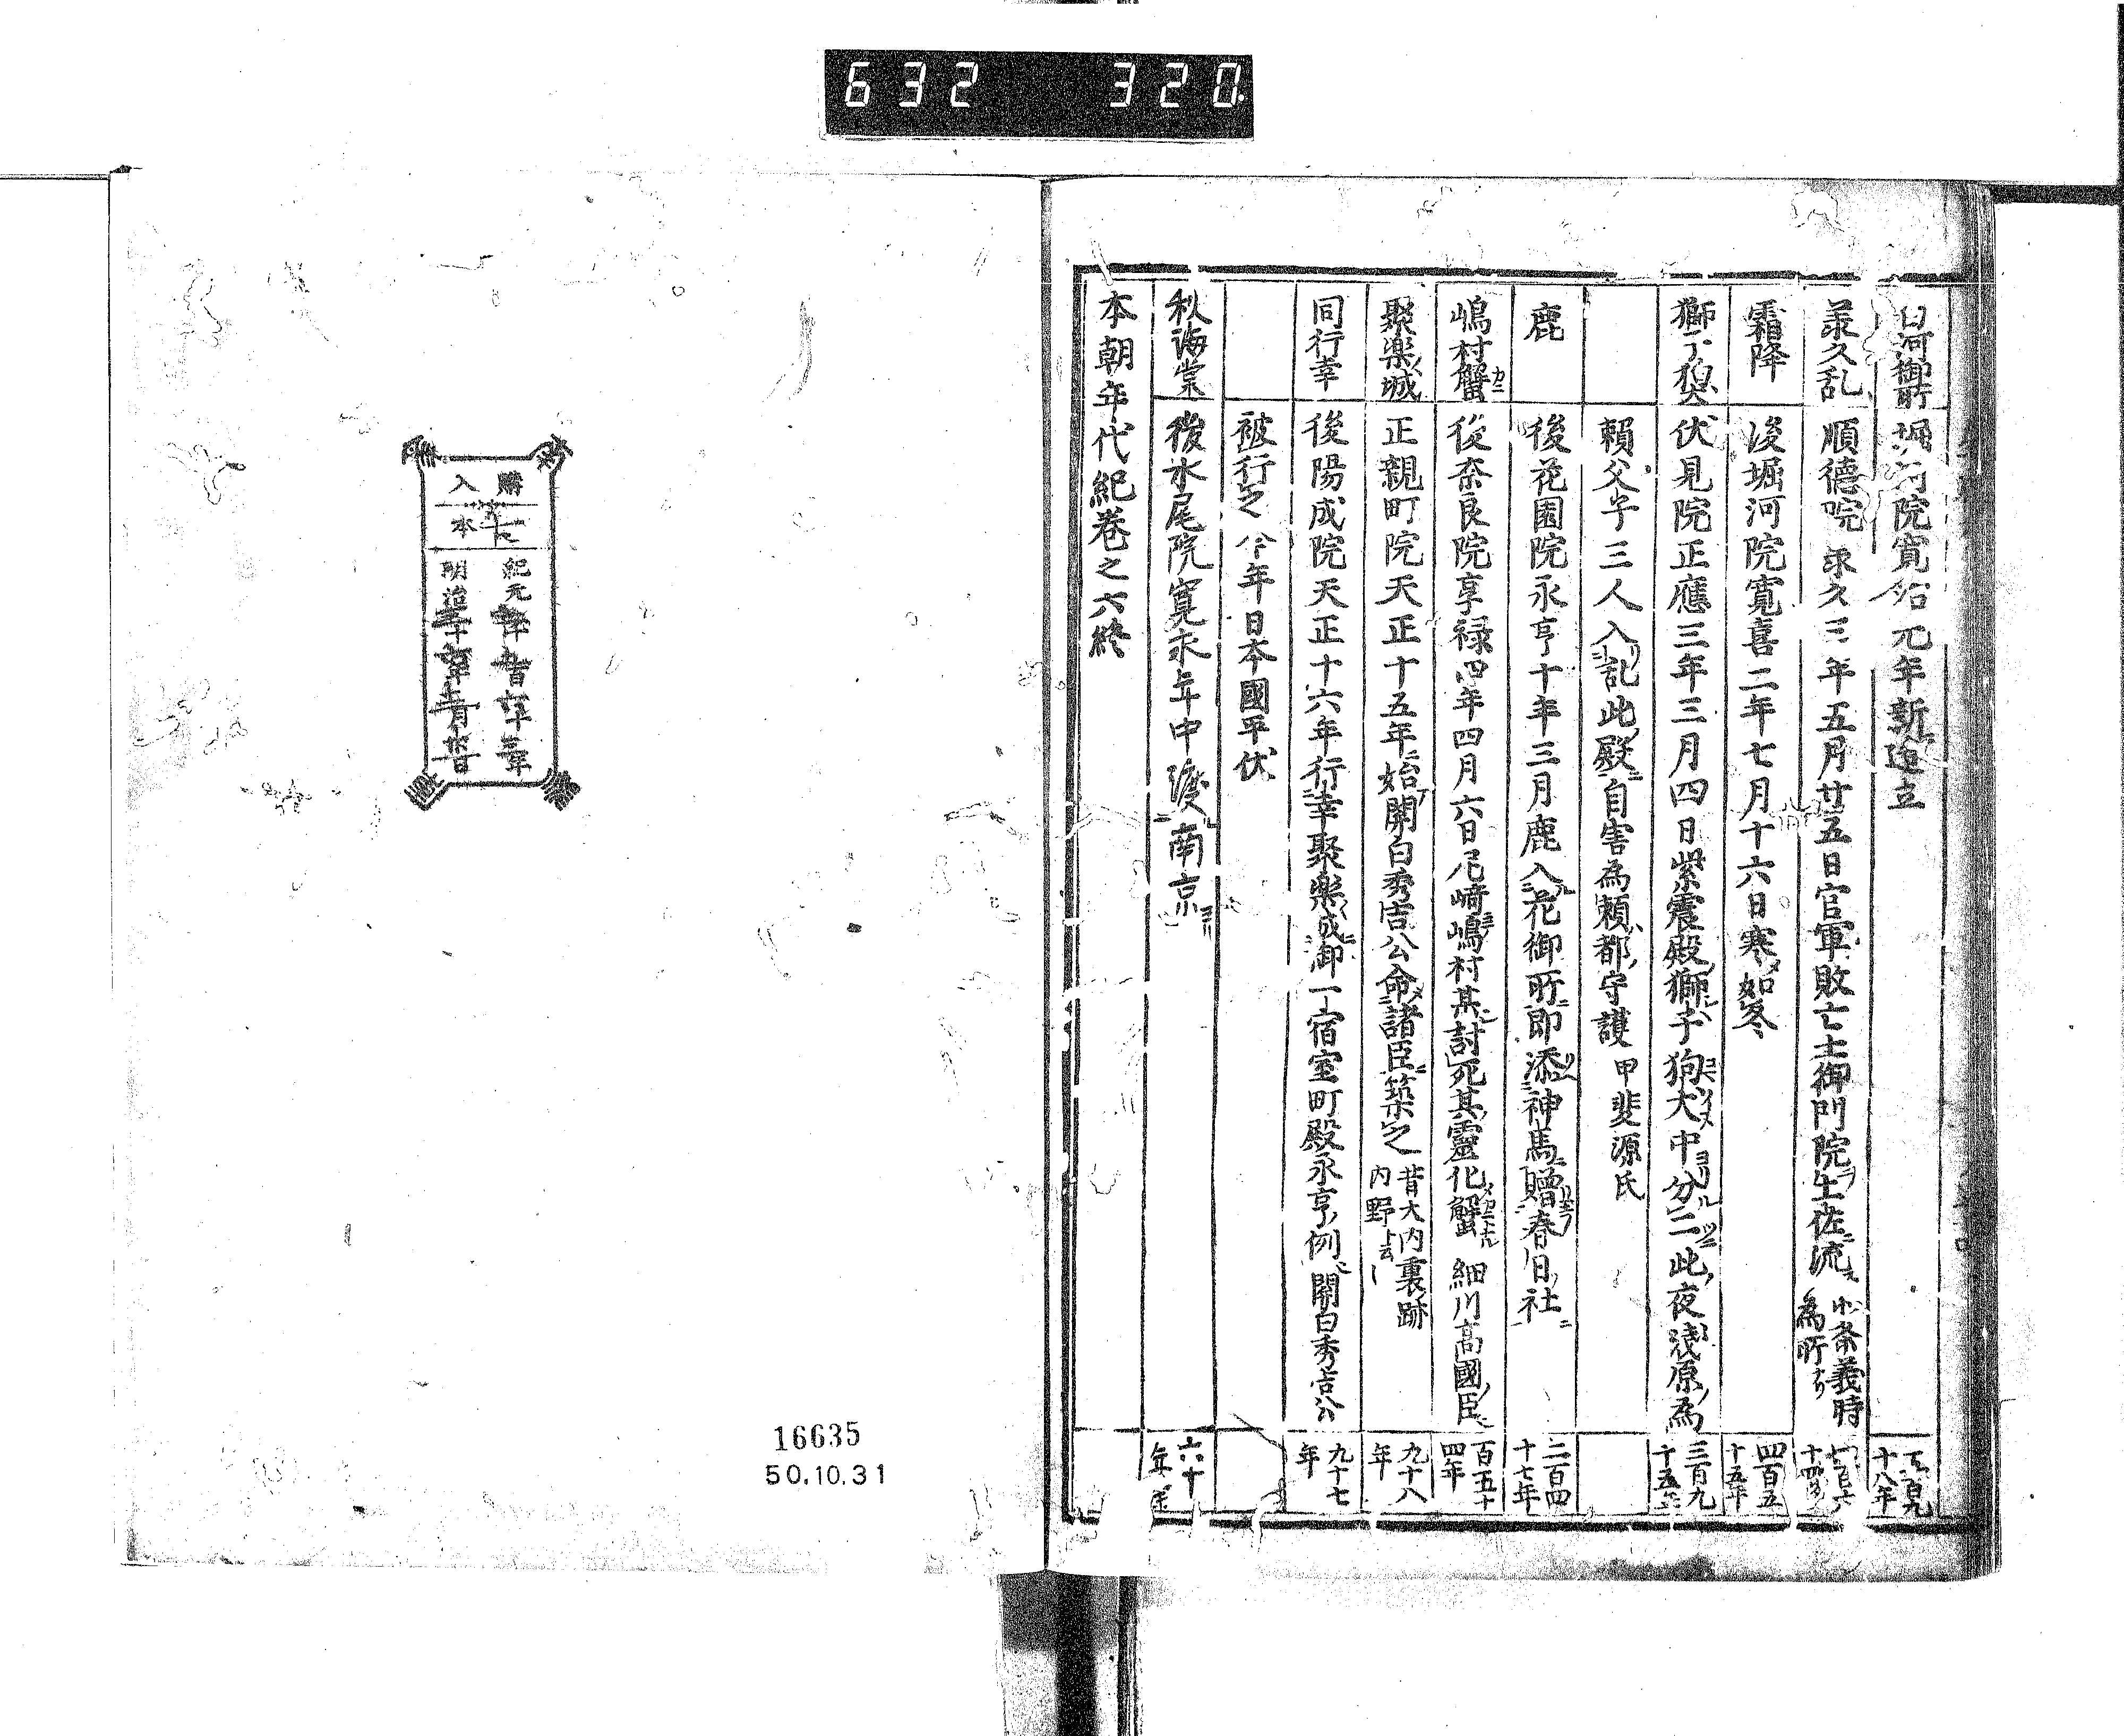 632 320.
白河御所 堀河院寛治元年新造立 五百九十八年
承久乱 順徳院承久三年五月廿五日官軍敗亡土御門院土佐流 北条義時為所ナリ
霜降 後堀河院寛喜二年七月十六日寒如冬 四百五十五年
獅子狛犬 伏見院正應三年三月四日紫震殿獅子狗犬中分二此夜浅原為 三百九十五年
頼父子三人入乱此殿自害為頼都守護 甲斐源氏
鹿 後花園院永亨十年三月鹿入花御所即添神馬贈春日社 二百四十七年
嶋村蟹 後奈良院享禄四年四月六日尼﨑嶋村某討死其霊化蟹 細川高國臣 百五十四年
聚楽城 正親町院天正十五年始關白秀吉公命諸臣築之 昔大内裏跡内野ト云 九十八年
同行幸 後陽成院天正十六年行幸聚楽成御一宿室町殿永亨例 關白秀吉公 九十七年
被行之 今年日本國平伏
秋海棠 後水尾院寛永年中渡南京 六十年余
本朝年代紀巻之六終
購入
本
紀元
明治
16635
50.10.31